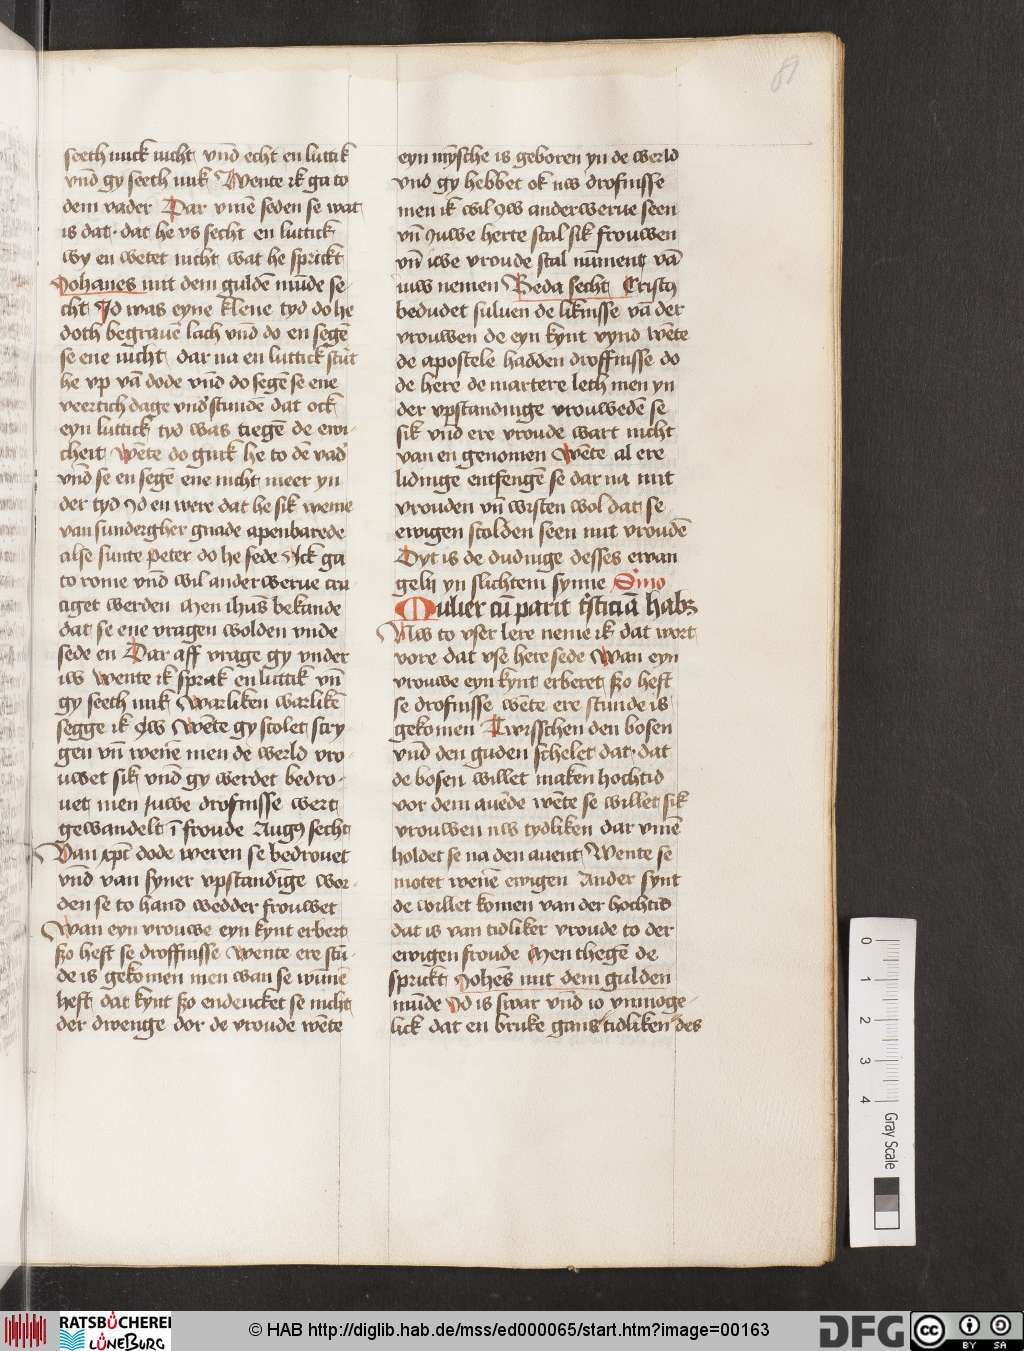 81
seeth mick nicht vnd̄ echt en luttik
vnd̄ gy seeth mik Wente ik ga to
dem vader Dar vm̄e seden se wat
is dat · dat he vs secht en luttick
wy en wetet nicht wat he sprickt
Johanes mit dem guldē mūde se-
cht Jd was eyne klene tyd do he
doth begrauē lach vnd̄ do en segē
se ene nicht dar na en luttick stūt
he vp vā dode vnd̄ do segē se ene
veertich dage vnd̓ stundē dat ock
eyn luttick tyd was tiegē de ewi-
cheit Wēte do ginck he to dē vad̓
vnd̄ se en segē ene nicht meer yn
der tyd Jd en were dat he sik weme
van sundergher gnade apenbarede
alse sunte peter do he sede Jck ga
to rome vnd̄ wil anderwerue cru
ciget werden Men ihūs bekande
dat se ene vragen wolden vnde
sede en Dar aff vrage gy vnder
iw wente ik sprak en luttik vn̄
gy seeth mik Warliken warlikē
segge ik Jw Wēte gy scolet scry
gen vn̄ wen̄e men de werld vro-
uwet sik vnd̄ gy werdet bedro-
uet men Juwe drofnisse wert
gewandelt ī froude Augꝰ secht
Van xp̄i dode weren se bedrouet
vnd̄ van syner vpstandīge wor-
den se to hand wedder frouwet
Wan eyn vrouwe eyn kynt erbert
ßo heft se droffnisse Wente ere stū-
de is gekomen men wan se wūnē
heft dat kynt ßo endencket se nicht
der dwenge dor de vroude wēte
eyn mȳsche is geboren yn de werld
vnd gy hebbet ok nw drofnisse
men ik wil Jw anderwerue seen
vn̄ Juwe herte scal sik frouwen
vn̄ iwe vroude scal nūment vā
iuw nemen Beda secht Cristꝰ
bedudet suluen de liknisse vā der
vrouwen de eyn kynt vynd wēte
de apostele hadden droffnisse do
de here de martere leth men yn
der vpstandinge vrouwedē se
sik vnd̄ ere vroude wart nicht
van en genomen Wēte al ere
lidinge entfengē se dar na mit
vrouden vn̄ wisten wol dat se
ewigen scolden seen mit vroudē
Dyt is de dudinge desses ewan
gelij yn slichtem synne Smo
Mulier cū parit tr̓sticiā habꝫ
Nw to vser lere neme ik dat wort
vore dat vse here sede Wan eyn
vrouwe eyn kynt erberet ßo heft
se drofnisse wēte ere stunde is
gekomen Twisschen den bosen
vnd̄ den guden schelet dat · dat
de bosen willet maken hochtid
vor dem auēde wēte se willet sik
vrouwen nw tydliken dar vm̄e
holdet se na den auent Wente se
motet wen̄e ewigen Ander synt
de willet komen van der hochtid
dat is van tidliker vroude to der
ewigen froude Men thegē de
sprickt Johēs mit dem gulden
mūde Jd is swar vnd̄ io vnmoge-
lick dat en bruke gans tidliken des
0 1 2 3 4
Gray Scale
RATSBÜCHEREI
LÜNEBURG
© HAB http://diglib.hab.de/mss/ed000065/start.htm?image=00163
DFG
cc BY SA